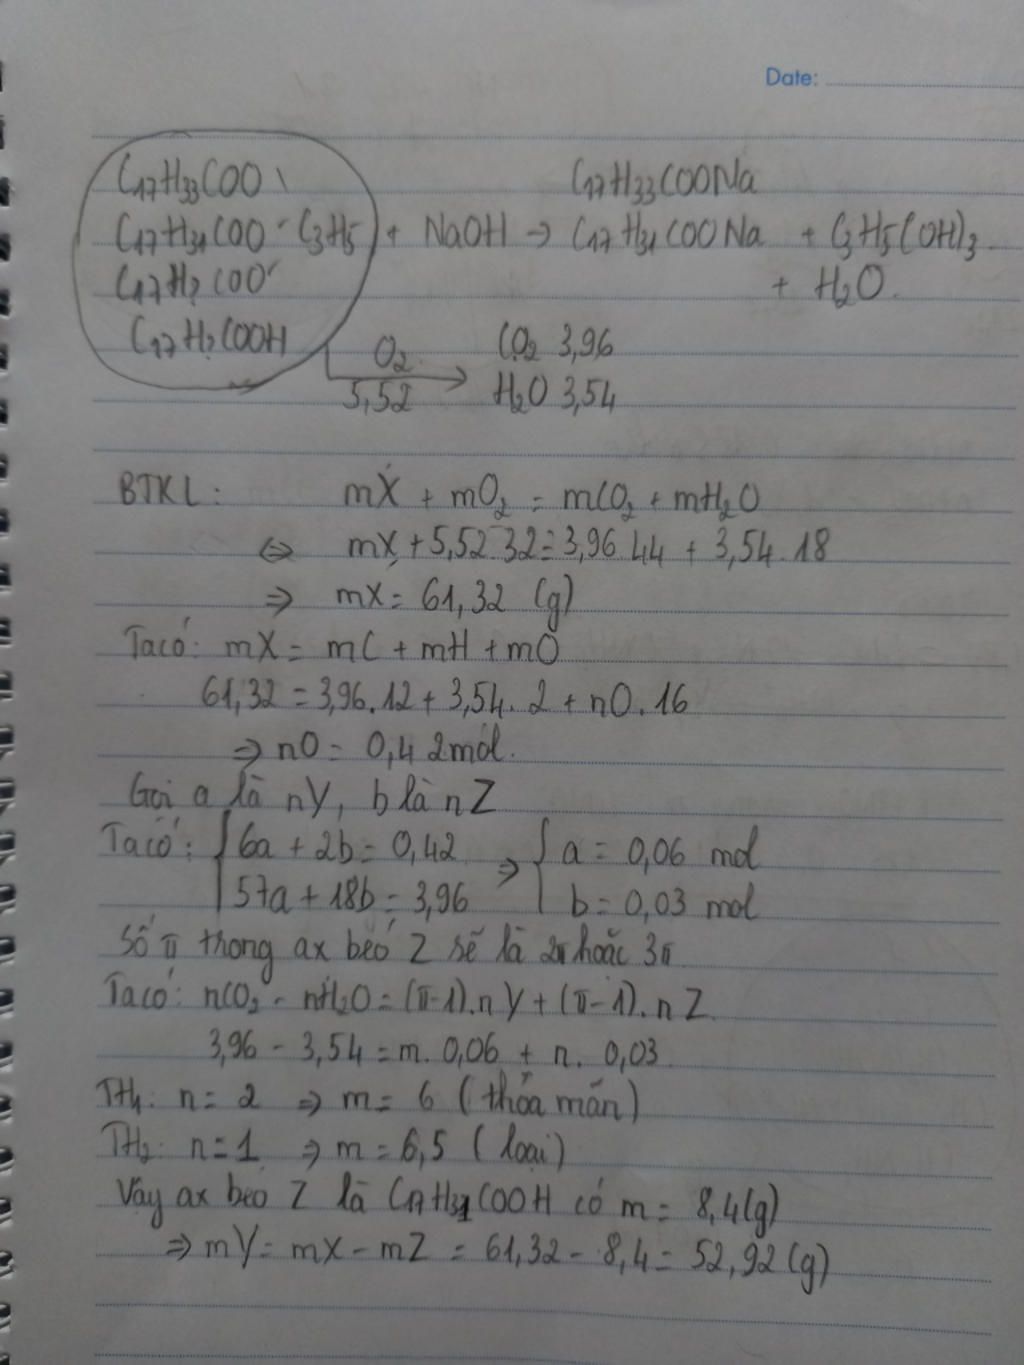 Date:
C₁₇H₃₃COO \ C₁₇H₃₃COONa
C₁₇H₃₁COO - C₃H₅ + NaOH → C₁₇H₃₁COONa + C₃H₅(OH)₃
C₁₇H?COO / + H₂O.
C₁₇H?COOH O₂ CO₂ 3,96
5,52 H₂O 3,54
BTKL: mX + mO₂ = mCO₂ + mH₂O
⇔ mX + 5,52.32 = 3,96.44 + 3,54.18
⇒ mX = 61,32 (g)
Ta có: mX = mC + mH + mO
61,32 = 3,96.12 + 3,54.2 + nO.16
⇒ nO = 0,42 mol.
Gọi a là nY, b là nZ
Ta có: { 6a + 2b = 0,42 ⇒ { a = 0,06 mol
57a + 18b = 3,96 b = 0,03 mol
Số π thong ax béo Z sẽ là 2π hoặc 3π
Ta có: nCO₂ - nH₂O = (π-1).nY + (π-1).nZ
3,96 - 3,54 = m.0,06 + n.0,03
TH₁: n = 2 ⇒ m = 6 (thỏa mãn)
TH₂: n = 1 ⇒ m = 6,5 (loại)
Vậy ax béo Z là C₁₇H₃₁COOH có m = 8,4(g)
⇒ mY = mX - mZ = 61,32 - 8,4 = 52,92 (g)